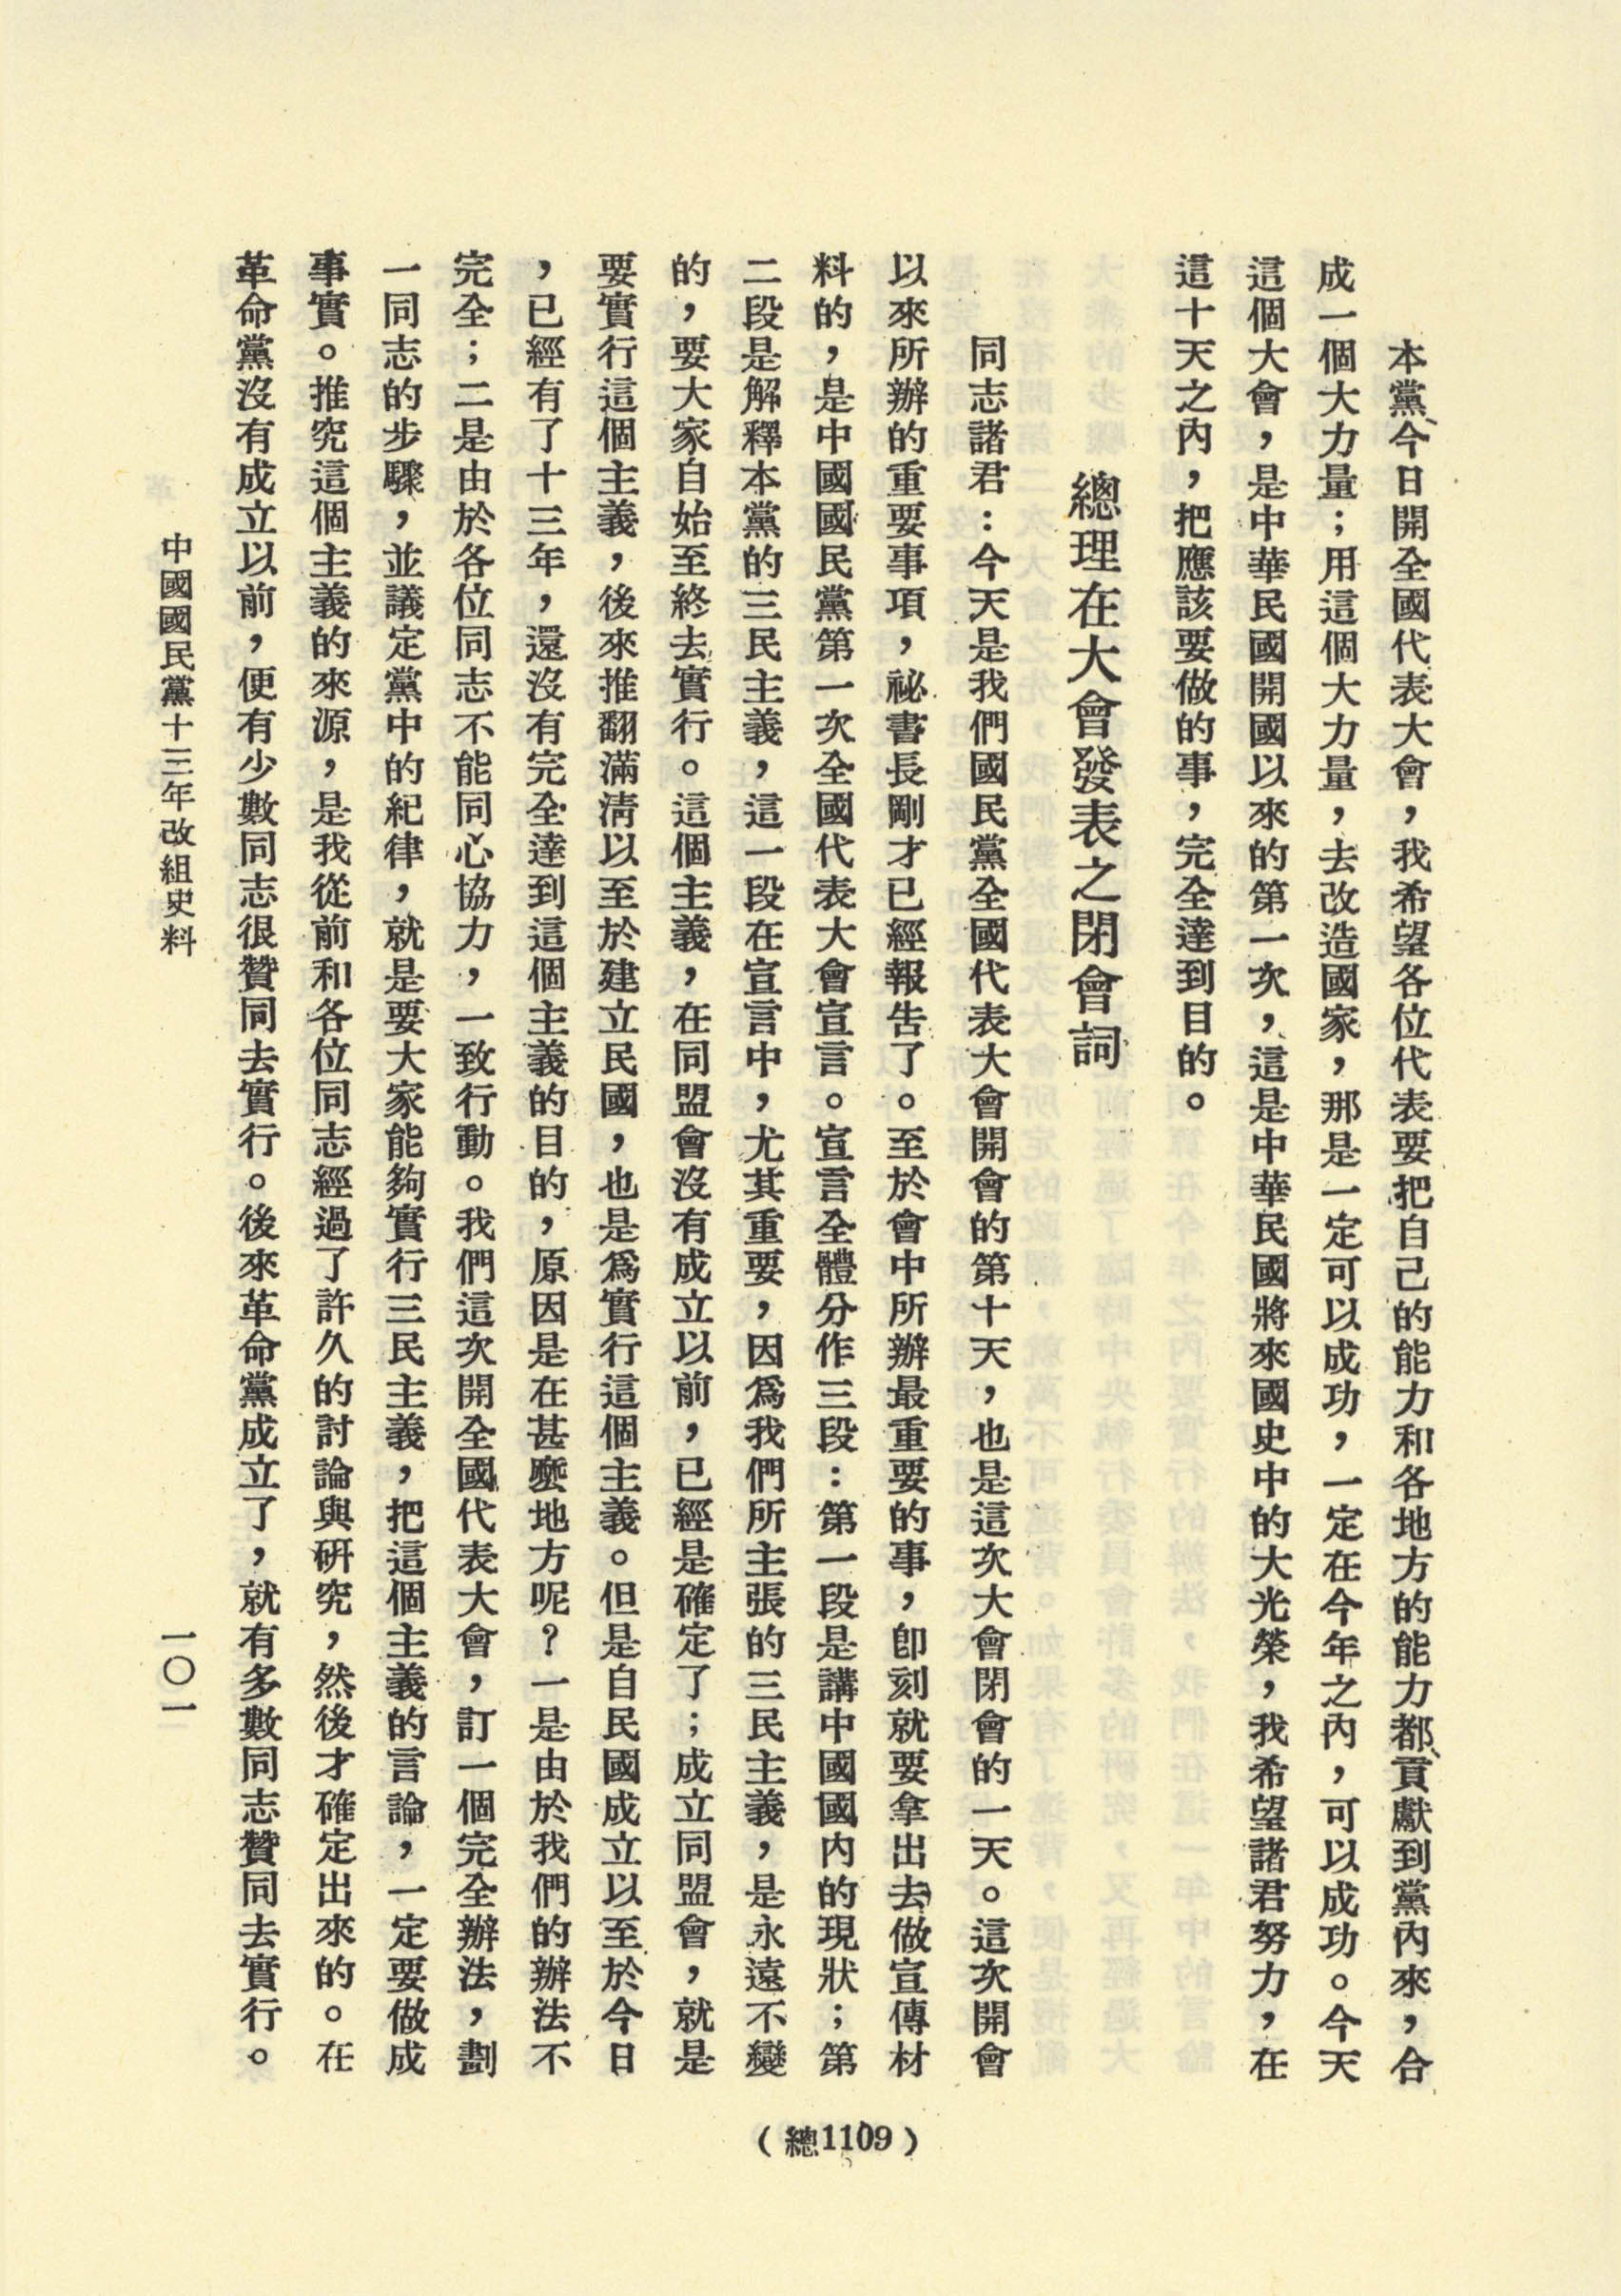 本黨今日開全國代表大會，我希望各位代表要把自己的能力和各地方的能力都貢獻到黨內來，合
成一個大力量；用這個大力量，去改造國家，那是一定可以成功，一定在今年之內，可以成功。今天
這個大會，是中華民國開國以來的第一次，這是中華民國將來國史中的大光榮，我希望諸君努力，在
這十天之內，把應該要做的事，完全達到目的。
總理在大會發表之閉會詞
同志諸君：今天是我們國民黨全國代表大會開會的第十天，也是這次大會閉會的一天。這次開會
以來所辦的重要事項，祕書長剛才已經報告了。至於會中所辦最重要的事，卽刻就要拿出去做宣傳材
料的，是中國國民黨第一次全國代表大會宣言。宣言全體分作三段：第一段是講中國國內的現狀；第
二段是解釋本黨的三民主義，這一段在宣言中，尤其重要，因爲我們所主張的三民主義，是永遠不變
的，要大家自始至終去實行。這個主義，在同盟會沒有成立以前，已經是確定了；成立同盟會，就是
要實行這個主義，後來推翻滿淸以至於建立民國，也是爲實行這個主義。但是自民國成立以至於今日
，已經有了十三年，還沒有完全達到這個主義的目的，原因是在甚麼地方呢？一是由於我們的辦法不
完全；二是由於各位同志不能同心協力，一致行動。我們這次開全國代表大會，訂一個完全辦法，劃
一同志的步驟，並議定黨中的紀律，就是要大家能夠實行三民主義，把這個主義的言論，一定要做成
事實。推究這個主義的來源，是我從前和各位同志經過了許久的討論與硏究，然後才確定出來的。在
革命黨沒有成立以前，便有少數同志很贊同去實行。後來革命黨成立了，就有多數同志贊同去實行。
中國國民黨十三年改組史料
一〇一
（總1109）